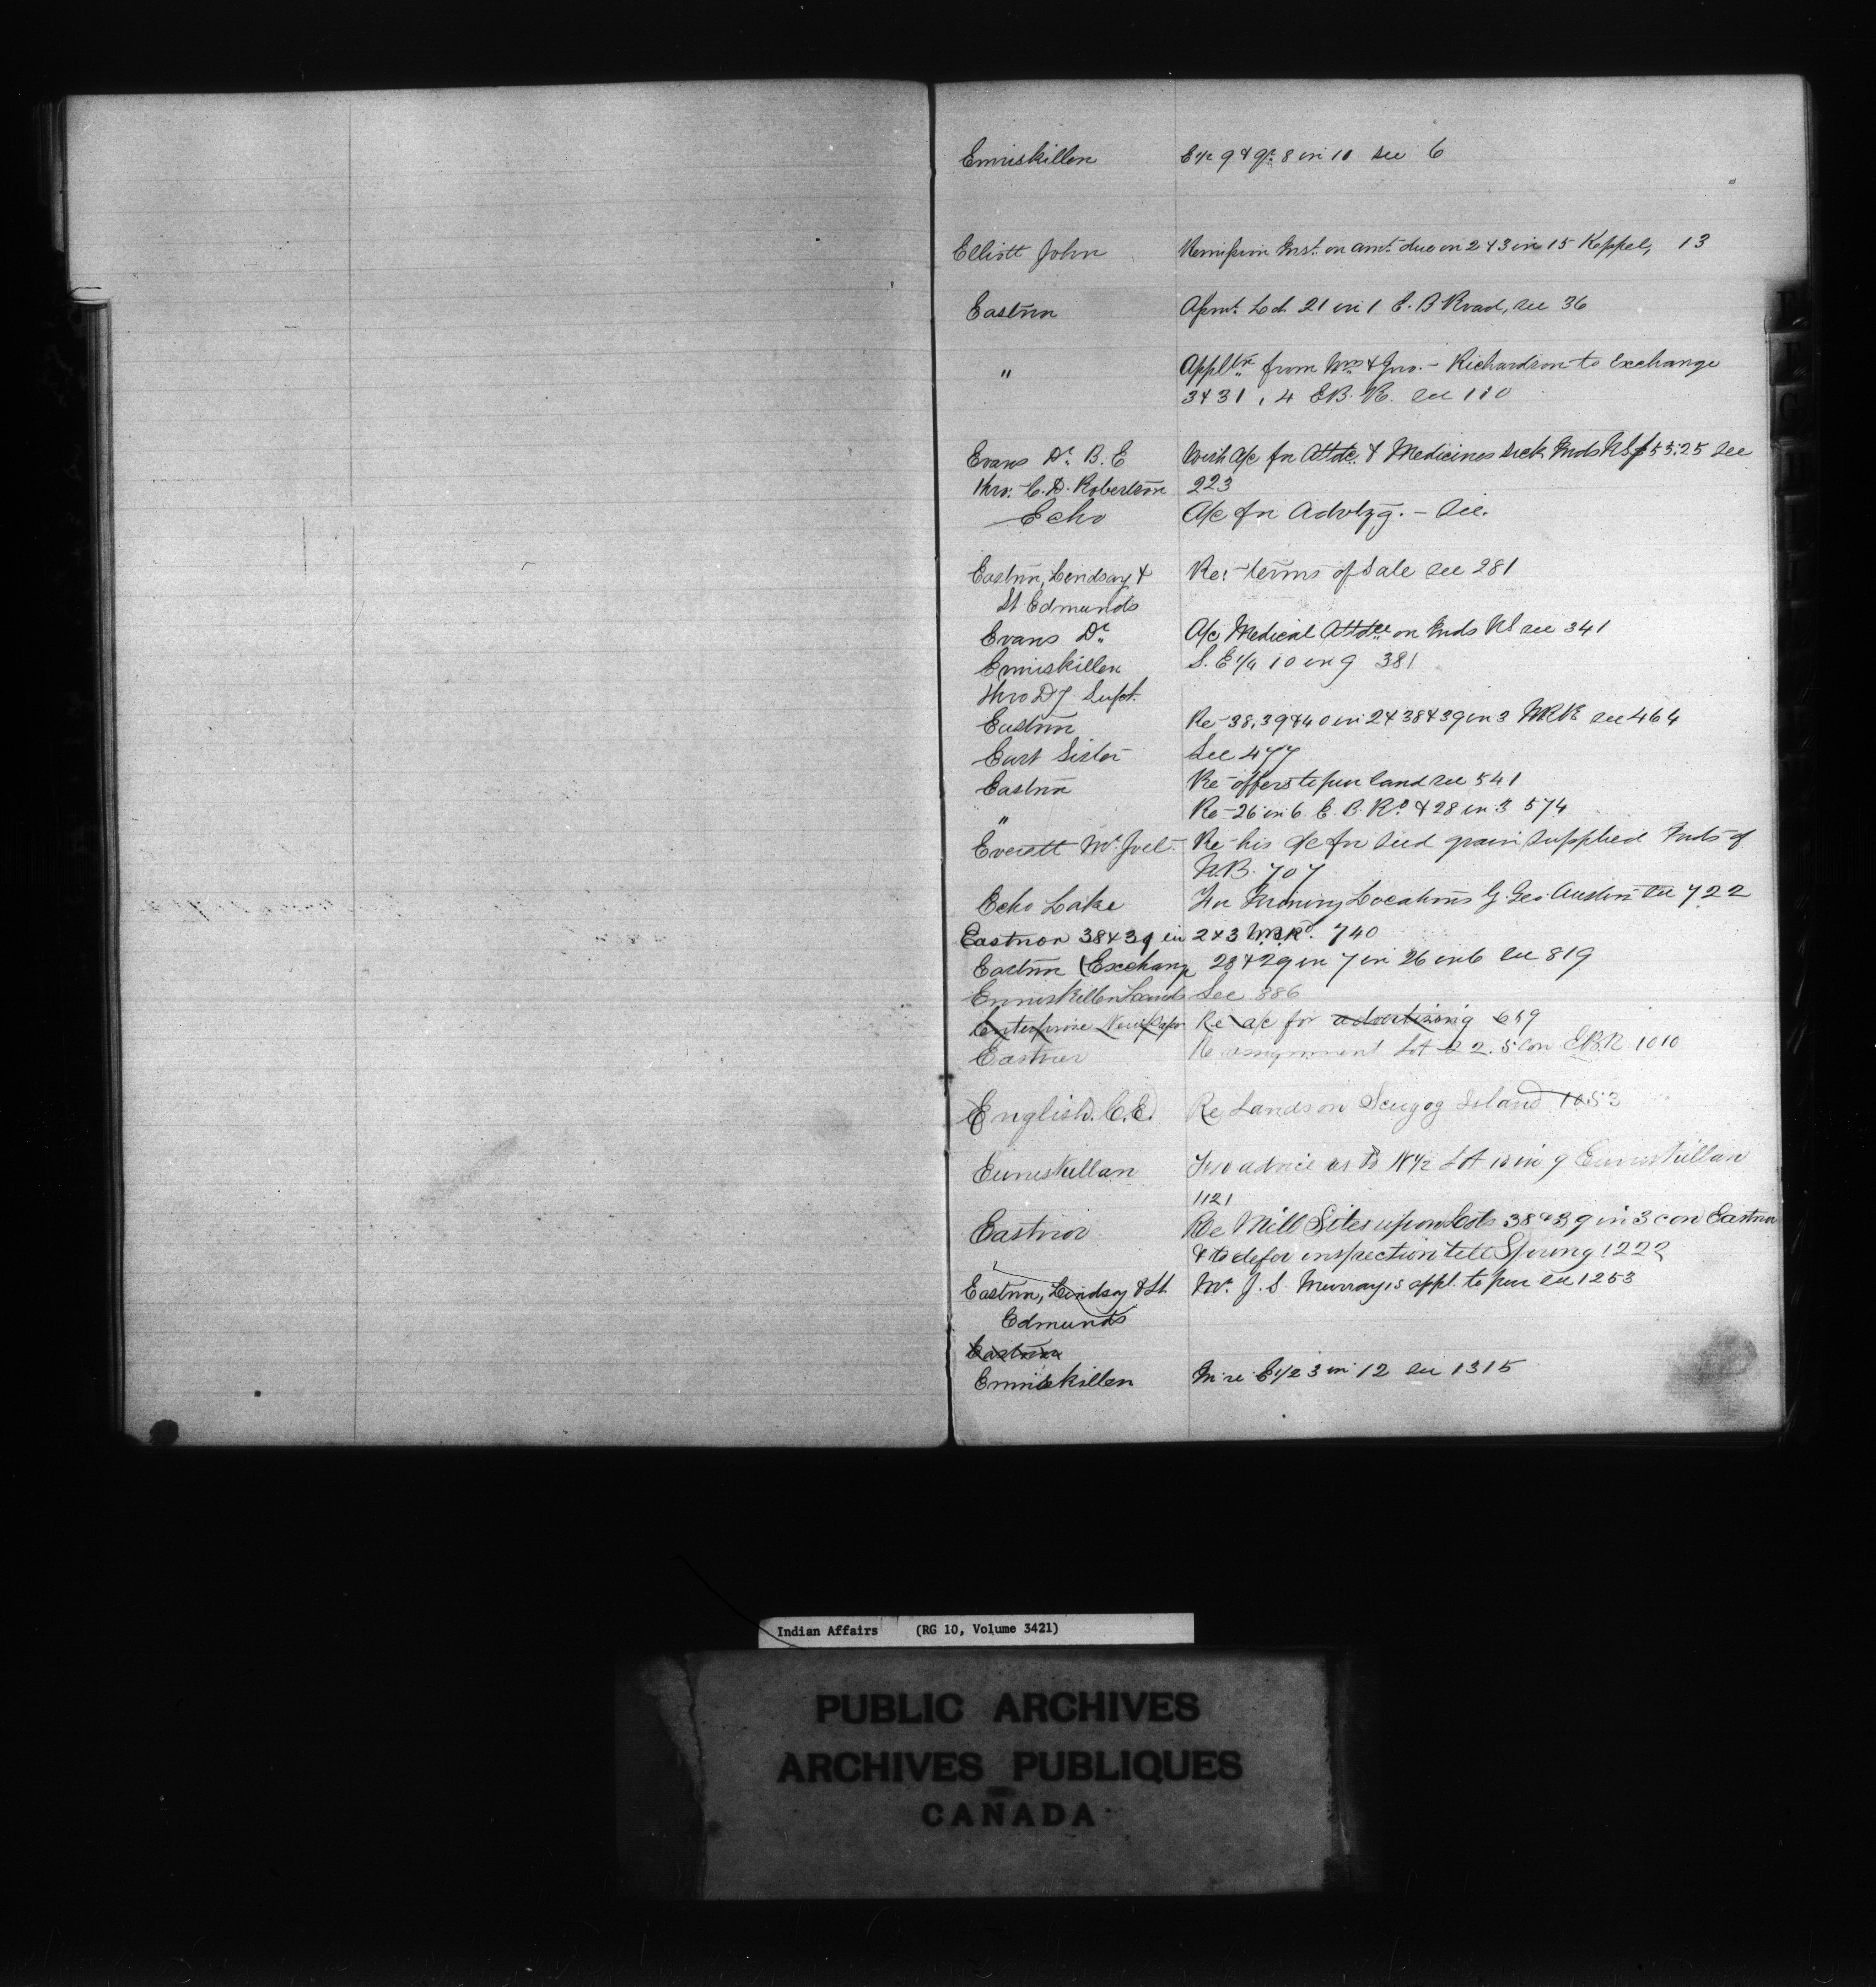 Enniskillen E 1/2 9 & gr. 8 in 10 see 6
Elliott John Remission Inst. on amt. due on 2 & 3 in 15 Keppel, 13
Eastnor Apmt. Lot 21 in 1 E. B Road, see 36
" Applt'n from Wm & Jno. - Richardson to Exchange
3 & 31, 4 E B. R. see 110
Evans Dr. B. E With a/c for Attdc. & Medicines sick Inds NS $53.25 see
thro: C. D. Robertson 223
Echo A/c for Advtzg. - See.
Eastnor, Lindsay & Re: terms of Sale see 281
St Edmunds
Evans Dr. A/c Medical Attdce on Inds NS see 341
Enniskillen S. E 1/4 10 in 9 381
thro Dy. Supt.
Eastnor Re - 38, 39 & 40 in 2 & 38 & 39 in 3 WRR see 464
East Sister See 477
Eastnor Re - offers to pur land see 541
" Re - 26 in 6 E. B. Rd & 28 in 3 574
Everett Mr. Joel - Re - his a/c for seed grain supplied Inds of
N.B. 707
Echo Lake For Mining Locations G. Geo. Austin see 722
Eastnor 38 & 39 in 2 & 3 W.B.Rd. 740
Eastnor (Exchange 28 & 29 in 7 in 26 in 6 see 819
Enniskillen Lands See 886
Enterprise Newspaper Re a/c for advertizing 659
Eastnor Re assignment Lot 22. 5 Con EBR 1010
English. C. E. Re Lands on Scugog Island 1053
Enniskillen advice as to N 1/2 Lot 13 in 9 Enniskillen
1121
Eastnor Re Mill Sites upon Lots 38 & 39 in 3 con Eastnor
& to defer inspection till Spring 1222
Eastnor, Lindsay & St. Mr. J. S. Murray's appl. to pur see 1253
Edmunds
Eastnor
Enniskillen In re E 1/2 3 in 12 see 1315
Indian Affairs (RG 10, Volume 3421)
PUBLIC ARCHIVES
ARCHIVES PUBLIQUES
CANADA